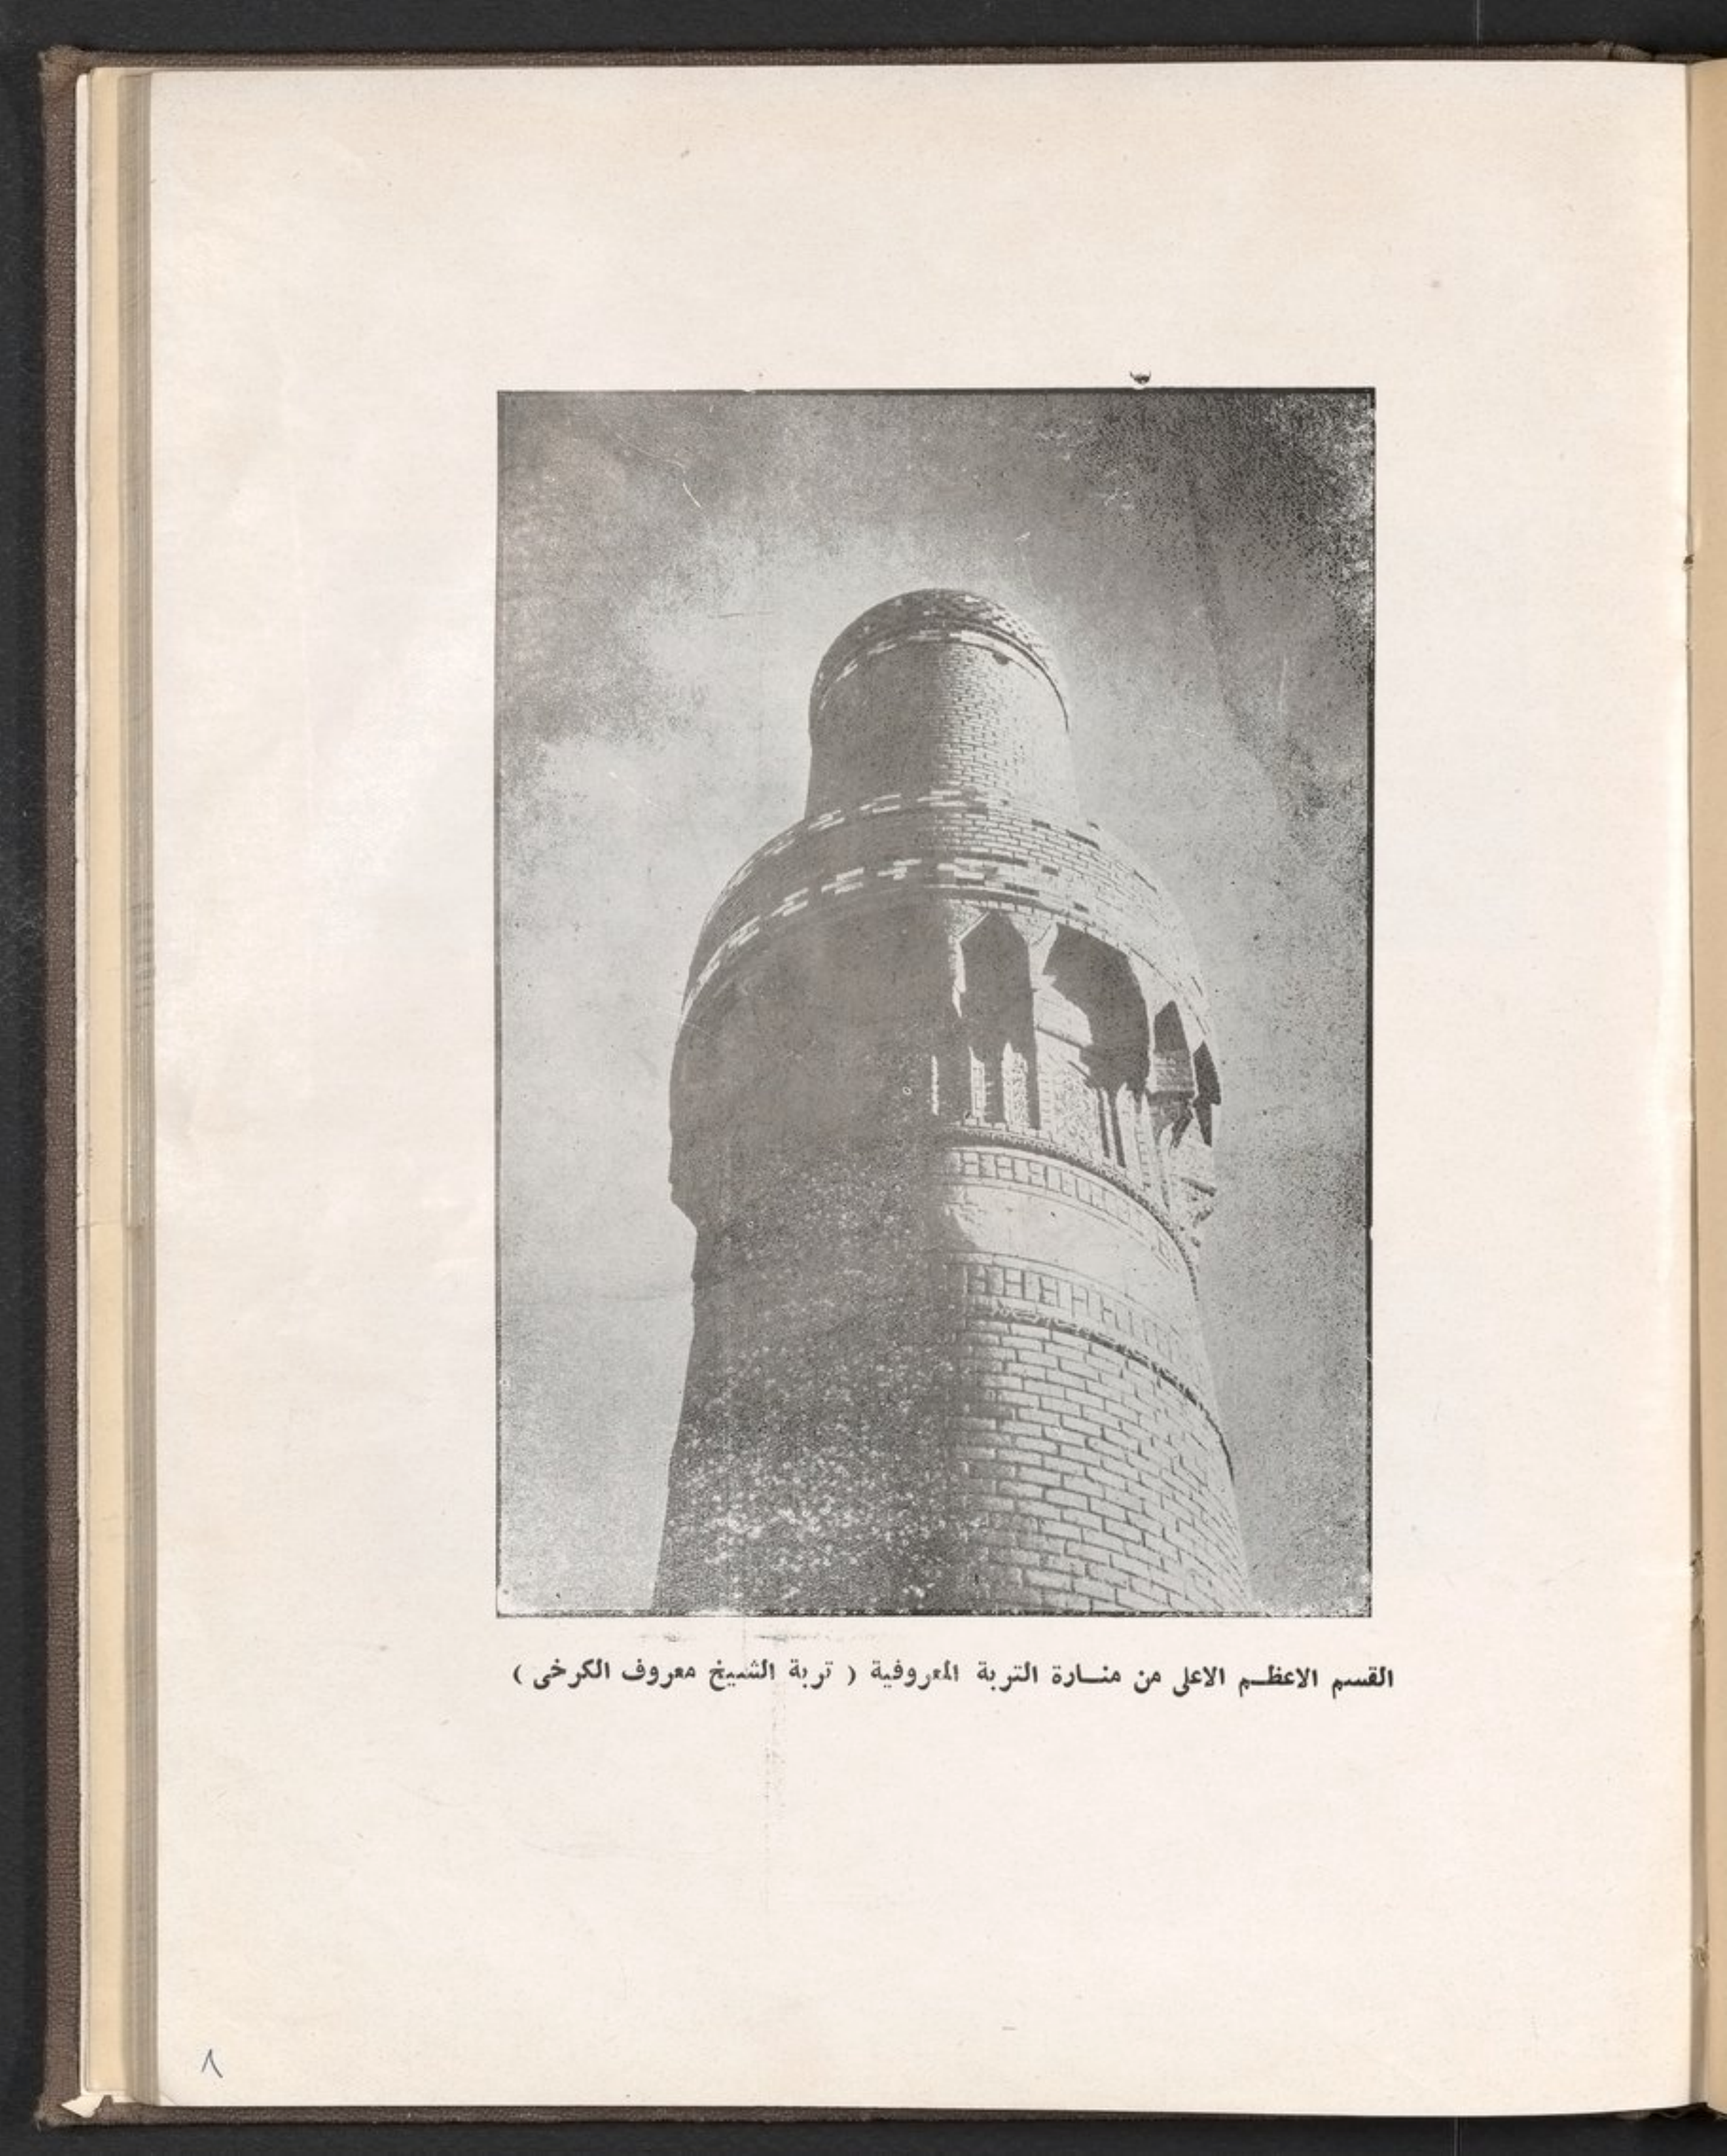 القسم الاعظم الاعلى من منارة التربة المعروفية ( تربة الشيخ معروف الكرخى )
٨